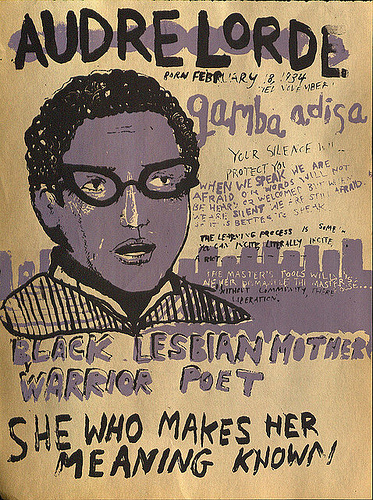 AUDRE LORDE
BORN FEBRUARY 18, 1934
NOVEMBER
gamba adisa
YOUR SILENCE
PROTECT YOU
WHEN WE SPEAK WE ARE
AFRAID OUR WORDS WILL NOT
BE HEARD OR WELCOMED BUT WHEN
WE ARE SILENT WE ARE STILL AFRAID.
IT IS BETTER TO SPEAK
THE LEARNING PROCESS IS SOME
YOU CAN INCITE, LITERALLY INCITE,
A RIOT.
THE MASTER'S TOOLS WILL
NEVER DISMANTLE THE MASTER'S
WITHOUT COMMUNITY, THERE
LIBERATION.
BLACK LESBIAN MOTHER
WARRIOR POET
SHE WHO MAKES HER
MEANING KNOWN